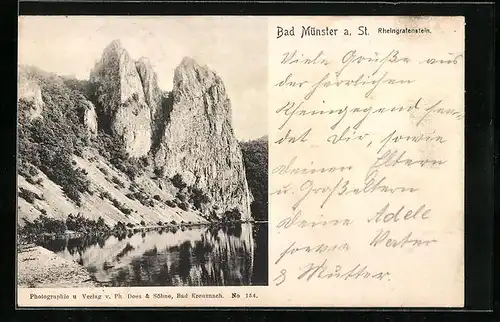 Bad Münster a. St. Rheingrafenstein.
Viele Grüße aus
der herrlichen
Rheingegend sen-
det Dir, sowie
Deinen Eltern
u. Großeltern
Deine Adele
sowie Vater
& Mutter.
Photographie u. Verlag v. Ph. Dees & Söhne, Bad Kreuznach. No 154.